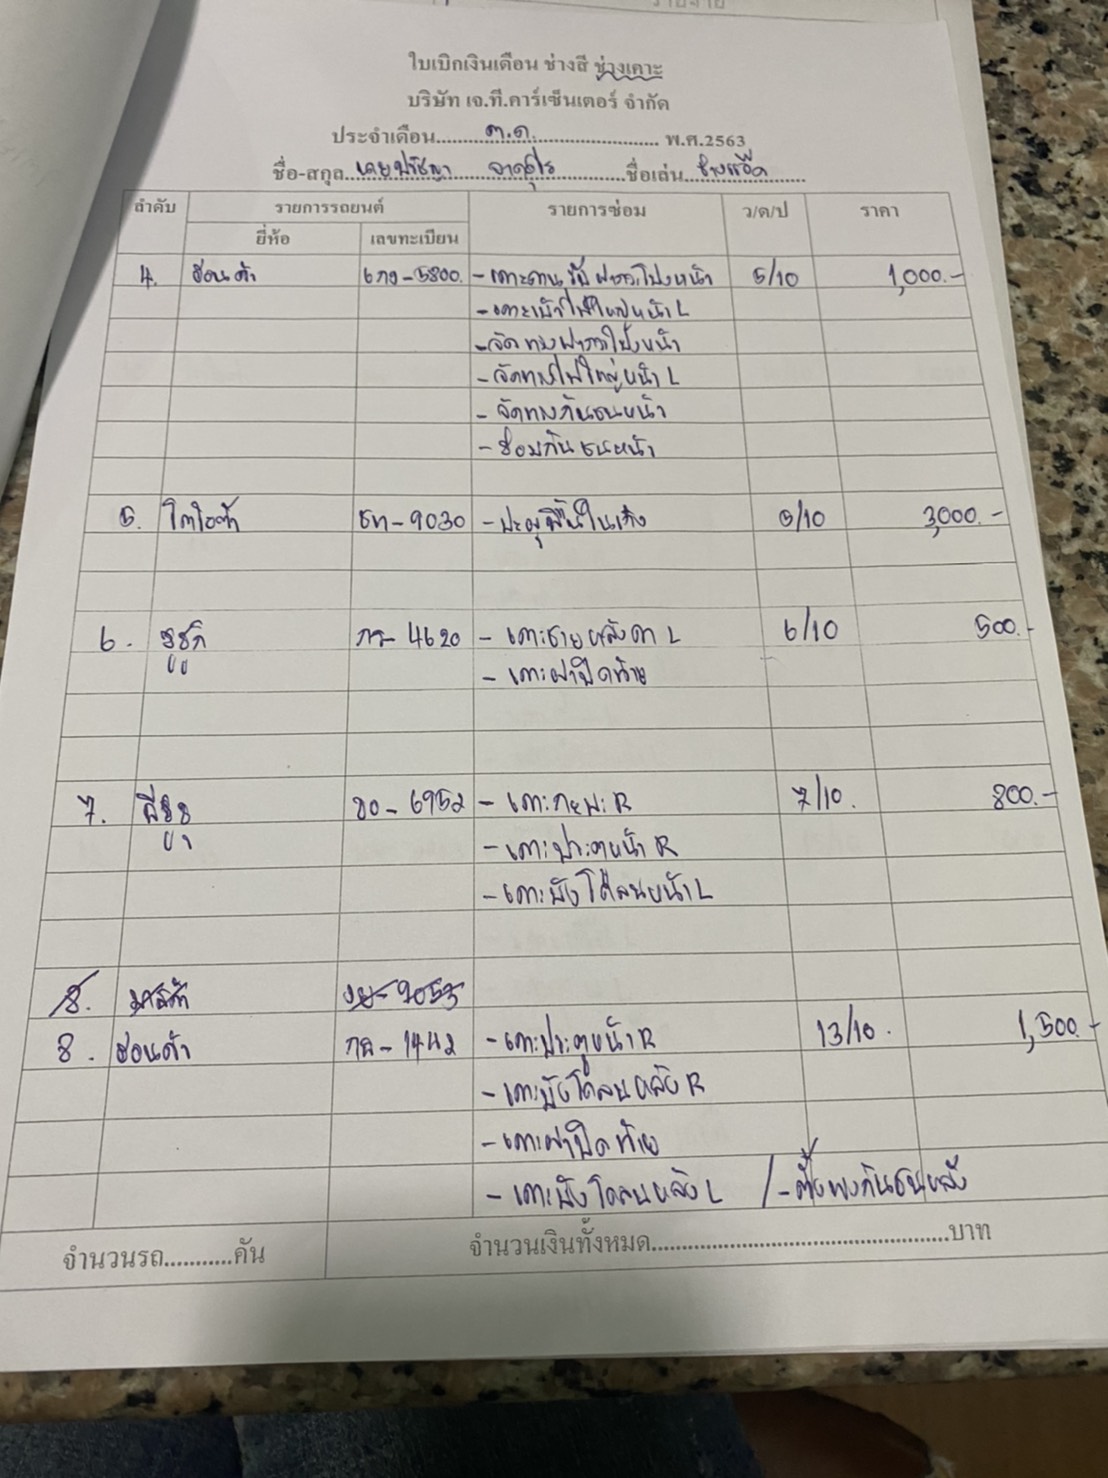 ใบเบิกเงินเดือน ช่างสี ช่างเคาะ
บริษัท เจ.ที.คาร์เซ็นเตอร์ จำกัด
ประจำเดือน ต.ค. พ.ศ.2563
ชื่อ-สกุล ชื่อเล่น
ลำดับ รายการรถยนต์ รายการซ่อม ว/ด/ป ราคา
ยี่ห้อ เลขทะเบียน
4. ฮอนด้า 6กง-5800 5/10 1,000.-
-เคาะเบ้าไฟใหญ่หน้า L
-จัดทรงฝากระโปรงหน้า
-จัดทรงไฟใหญ่หน้า L
-จัดทรงกันชนหน้า
-ซ่อมกันชนหน้า
5. โตโยต้า ธท-9030 -ปะผุพื้นในเก๋ง 5/10 3,000.-
6. ซูซูกิ 4620 -เคาะชายหลังคา L 6/10 500.-
-เคาะฝาปิดท้าย
7. อีซูซุ 80-6952 -เคาะกะบะ R 7/10. 800.-
-เคาะประตูหน้า R
-เคาะบังโคลนหน้า L
8.
8. ฮอนด้า 1442 -เคาะประตูหน้า R 13/10. 1,500.-
-เคาะบังโคลนหลัง R
-เคาะฝาปิดท้าย
-เคาะบังโคลนหลัง L /-ตั้งพงกันชนหลัง
จำนวนรถ...........คัน จำนวนเงินทั้งหมด..................................................บาท